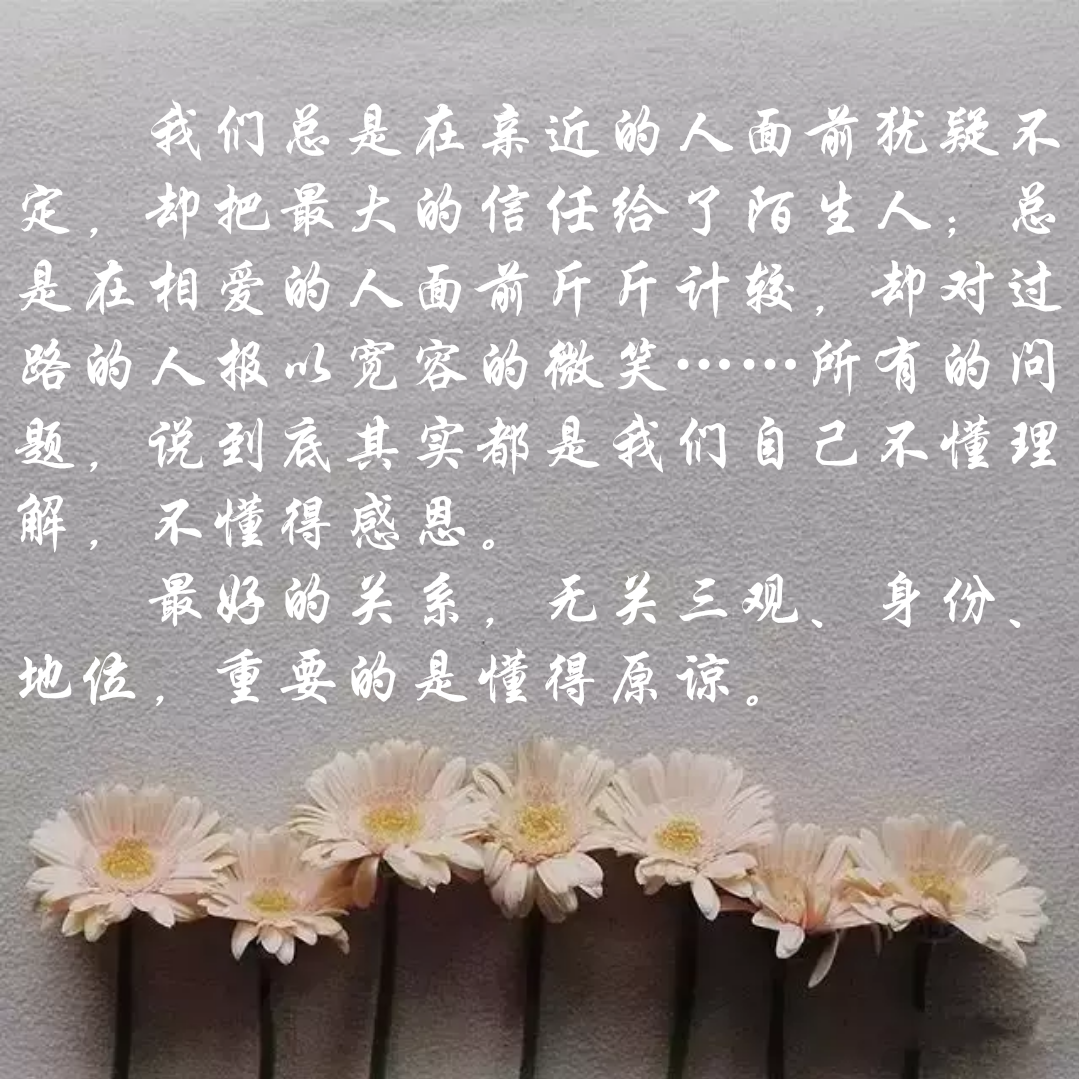 我们总是在亲近的人面前犹疑不
定，却把最大的信任给了陌生人；总
是在相爱的人面前斤斤计较，却对过
路的人报以宽容的微笑……所有的问
题，说到底其实都是我们自己不懂理
解，不懂得感恩。
最好的关系，无关三观、身份、
地位，重要的是懂得原谅。